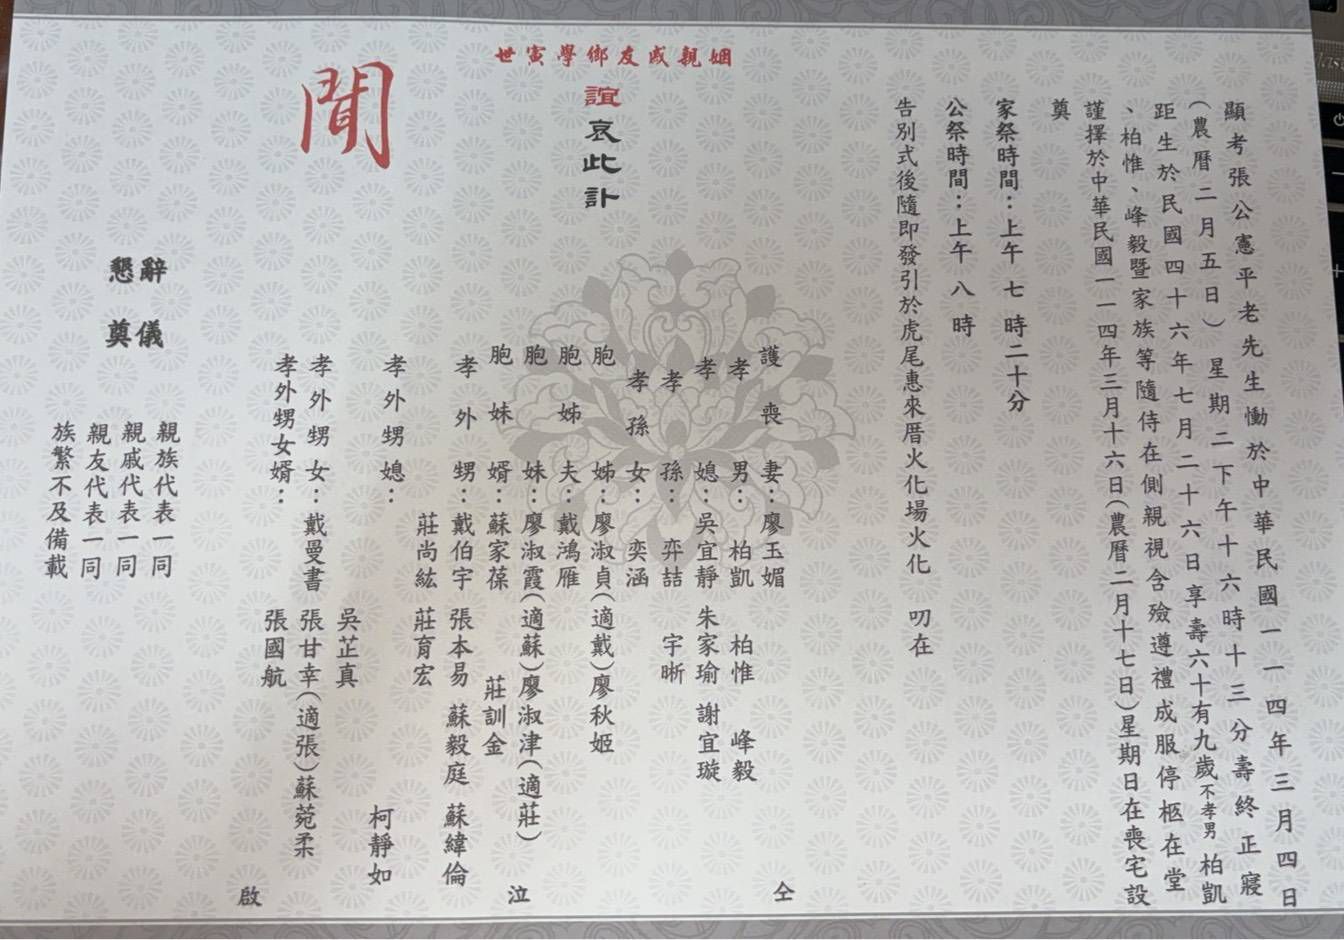 顯考張公憲平老先生慟於中華民國一一四年三月四日
(農曆二月五日)星期二下午十六時十三分壽終正寢
距生於民國四十六年七月二十六日享壽六十有九歲不孝男柏凱
、柏惟、峰毅暨家族等隨侍在側親視含殮遵禮成服停柩在堂
謹擇於中華民國一一四年三月十六日(農曆二月十七日)星期日在喪宅設
奠
家祭時間：上午七時二十分
公祭時間：上午八時
告別式後隨即發引於虎尾惠來厝火化場火化 叨在
姻親戚友鄉學寅世
誼哀此訃
聞
護喪妻：廖玉媚
孝男：柏凱 柏惟 峰毅
孝媳：吳宜靜 朱家瑜 謝宜璇
孝孫：弈喆 宇晰
孝孫女：奕涵
胞姊：廖淑貞(適戴)廖秋姬
胞姊夫：戴鴻雁
胞妹：廖淑霞(適蘇)廖淑津(適莊)
胞妹婿：蘇家葆 莊訓金
孝外甥：戴伯宇 張本易 蘇毅庭 蘇緯倫
莊尚紘 莊育宏
孝外甥媳：柯靜如
吳芷真
孝外甥女：戴曼書 張甘幸(適張)蘇菀柔
孝外甥女婿：張國航
仝
泣
啟
懇辭
奠儀
親族代表一同
親戚代表一同
親友代表一同
族繁不及備載